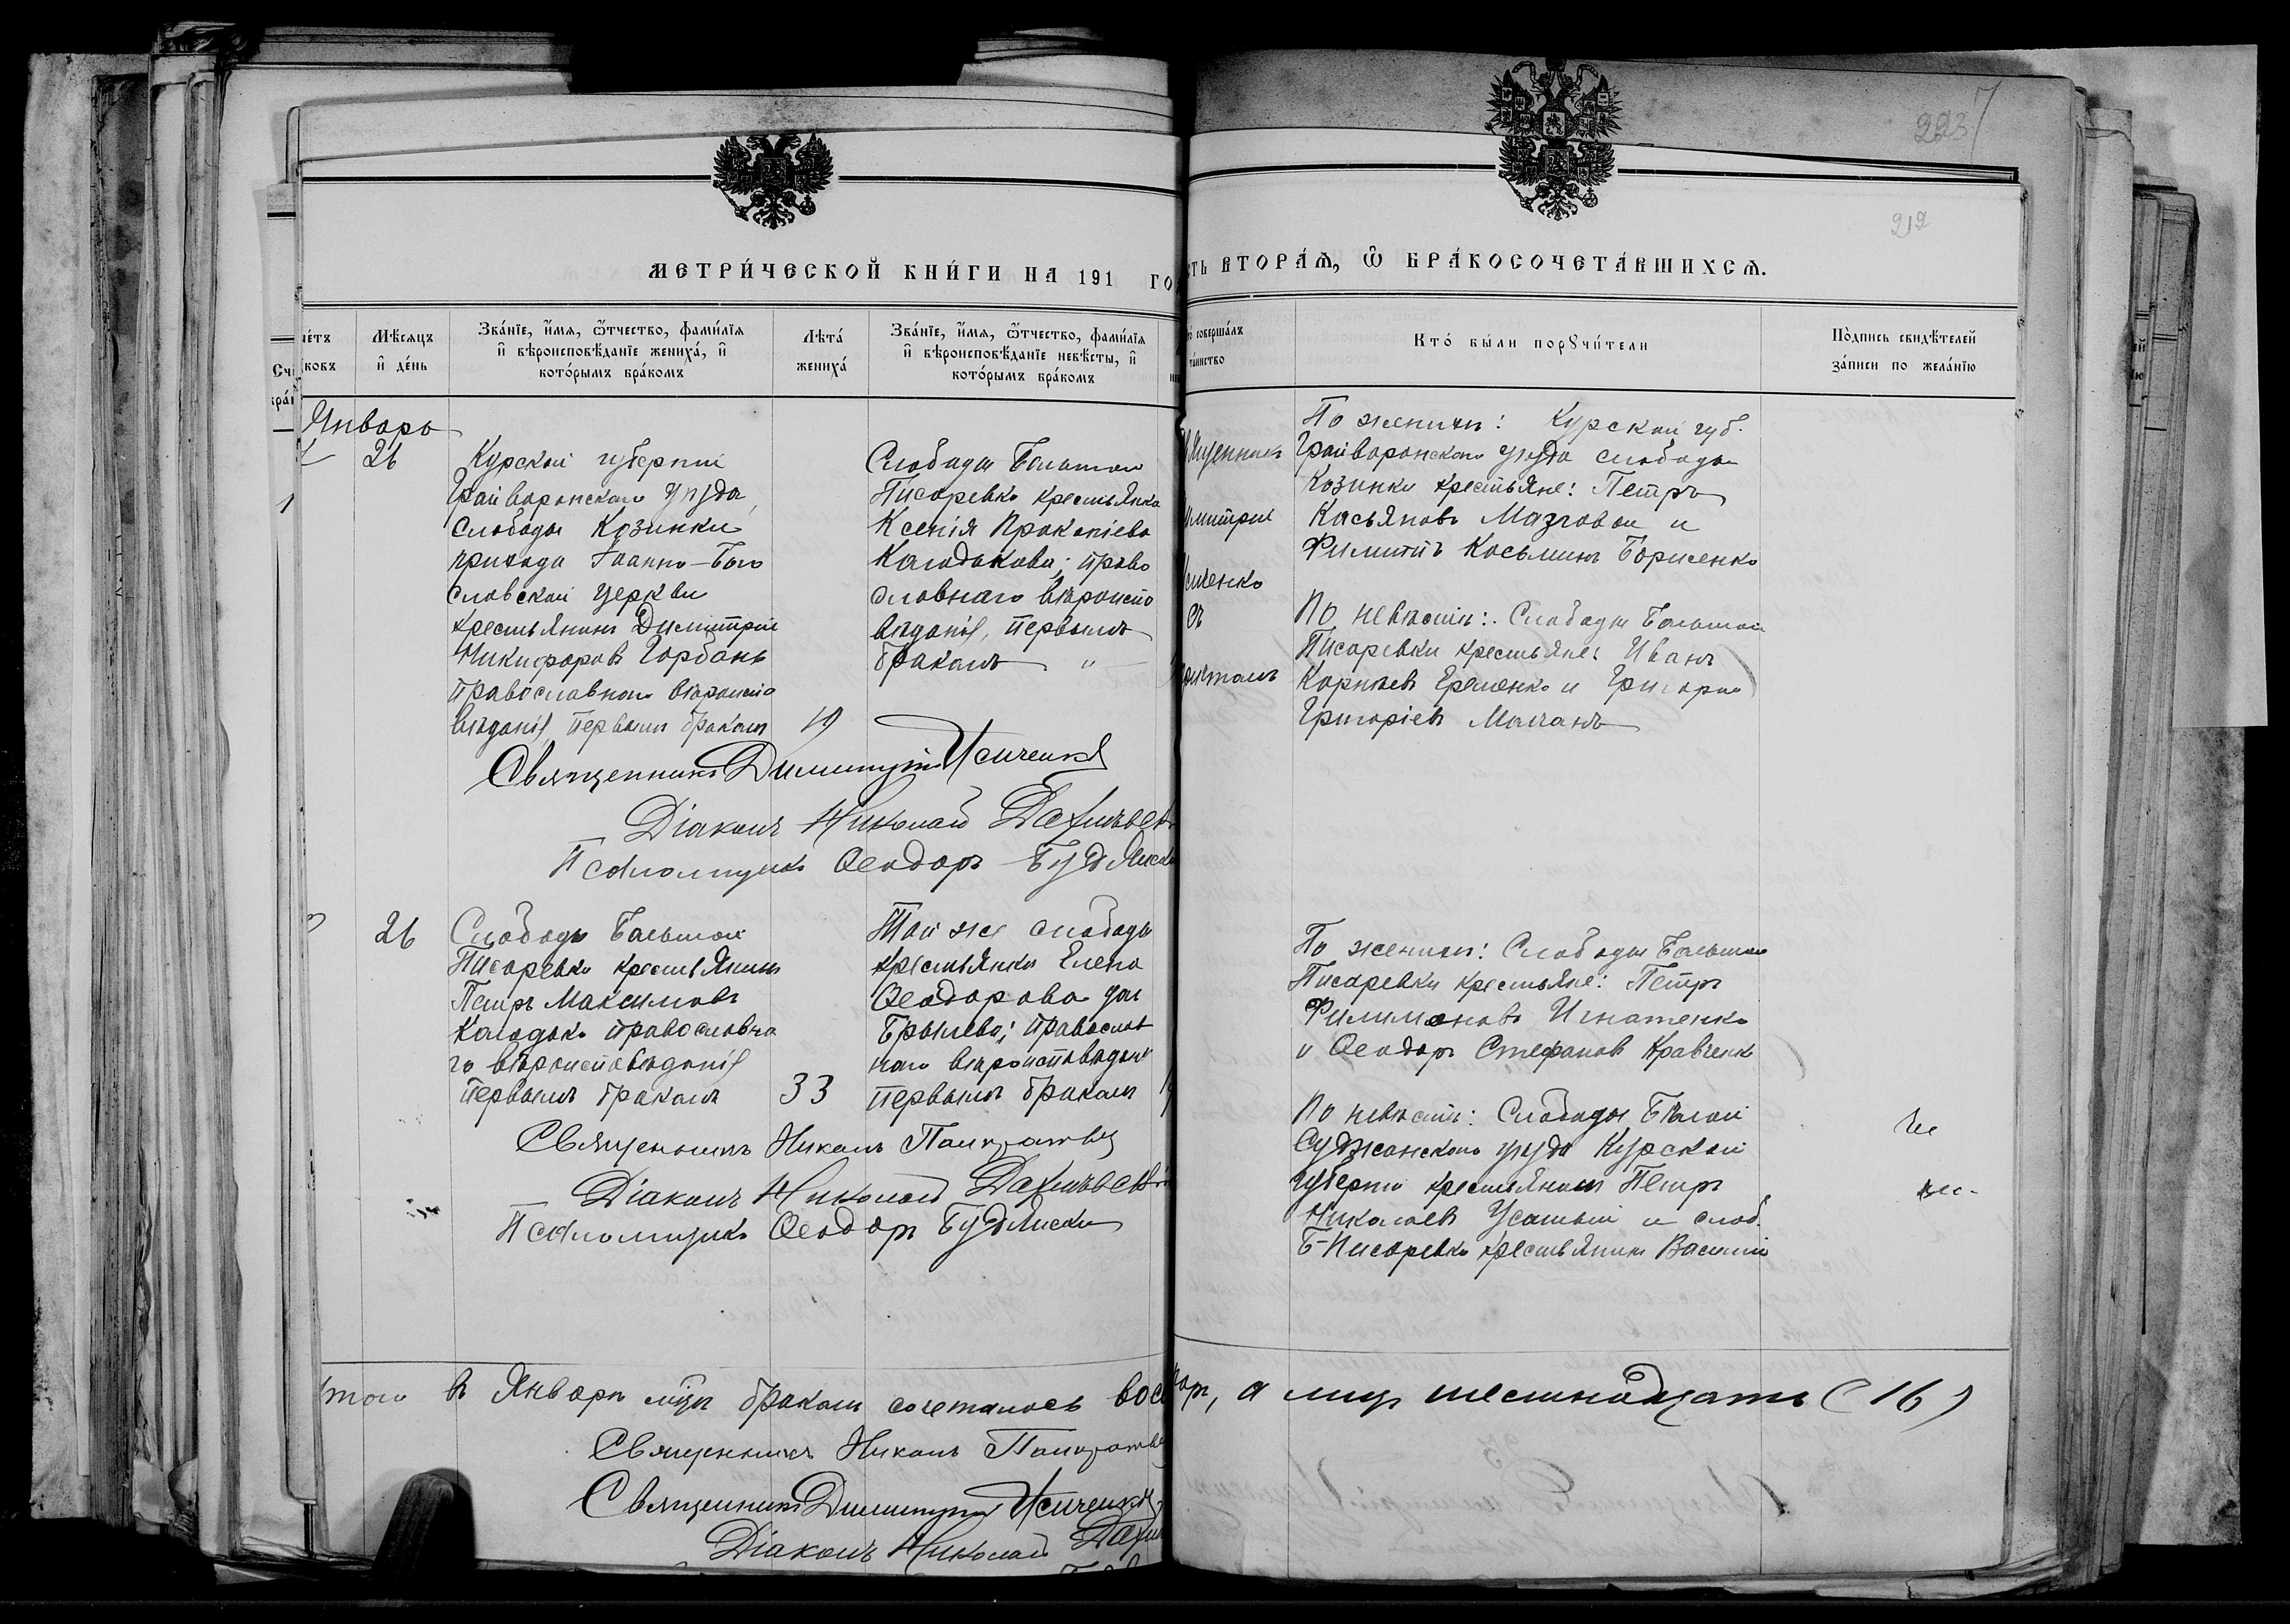 223
212
МЕТРИ́ЧЕСКОЙ КНИ́ГИ НА 191 ГО
СТЬ ВТОРА́Ѧ, Ѽ БРА́КОСОЧЕТА́ВШИХСѦ.
Мѣ́сяцъ и҆ де́нь
Зва́нїе, и҆́мѧ, ѻ҆́тчество, фами́лїѧ и҆ вѣроисповѣ́данїе жениха̀, и҆ кото́рымъ бра́комъ
Лѣта̀ жениха̀
Зва́нїе, и҆́мѧ, ѻ҆́тчество, фами́лїѧ и҆ вѣроисповѣ́данїе невѣ́сты, и҆ кото́рымъ бра́комъ
совершáлъ
тáинство
Кто́ бы́ли порꙋчи́тели
По́дпись свидѣ́телей за́писи по жела́нїю
Январь
26
1
Курской губерніи
Грайворонскаго уѣзда,
слободы Козинки
прихода Іоанно-Бого
словской церкви
крестьянинъ Димитрій
Никифоровъ Горбань
православнаго вѣроиспо
вѣданія, первымъ бракомъ
19
Слободы Большой
Писаревки крестьянка
Ксенія Прокопіева
Калодкова; право
славнаго вѣроиспо
вѣданія, первымъ
бракомъ "
Священникъ
Димитрій
Исиченко
съ
По женихѣ: Курской губ.
Грайворонскаго уѣзда слободы
Козинки крестьяне: Петръ
Касьяновъ Мазговой и
Филиппъ Косьминъ Борисенко
По невѣстѣ: Слободы Большой
Писаревки крестьяне: Иванъ
Корнѣевъ Еременко и Григорій
Григоріевъ Малчанъ
Священникъ Димитрій Исиченко
Діаконъ Николай
Псаломщикъ Ѳеодоръ
26
Слободы Большой
Писаревки крестьянинъ
Петръ Максимовъ
Калодько православна
го вѣроисповѣданія
первымъ бракомъ
33
Той же слободы
крестьянка Елена
Ѳеодорова
Брылева; православ
наго вѣроисповѣдан
первымъ бракомъ
По женихѣ: Слободы Большой
Писаревки крестьяне: Петръ
Филимоновъ Игнатенко
и Ѳеодоръ Стефановъ Кравченко
По невѣстѣ: Слободы Бѣлой
Суджанскаго уѣзда Курской
губерніи крестьянинъ Петръ
Николаевъ Усатый и слоб.
Б-Писаревки крестьянинъ Василій
Священникъ Никонъ
Діаконъ Николай
Псаломщикъ Ѳеодоръ
Итого въ Январѣ мцѣ бракомъ сочеталось вос паръ, а лицъ шестнадцать (16)
Священникъ Никонъ
Священникъ Димитрій Исиченко
Діаконъ Николай